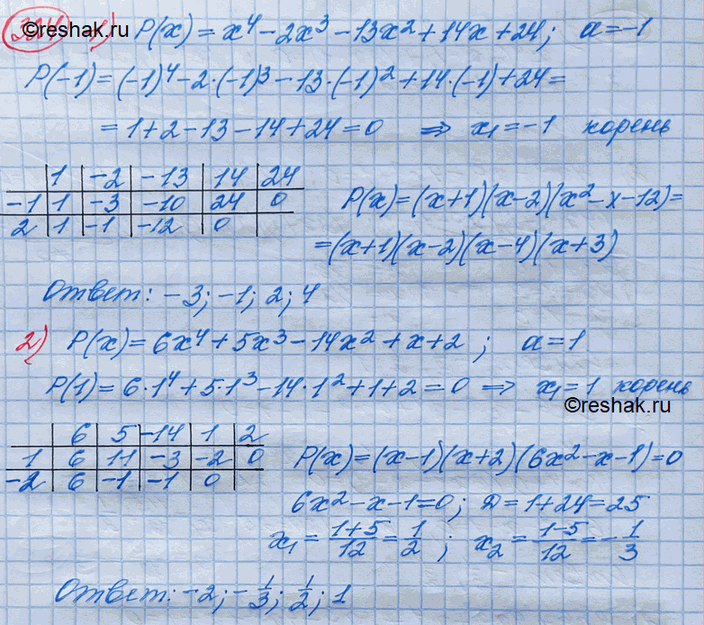 ©reshak.ru
1) P(x) = x⁴ - 2x³ - 13x² + 14x + 24; a = -1
P(-1) = (-1)⁴ - 2·(-1)³ - 13·(-1)² + 14·(-1) + 24 =
= 1 + 2 - 13 - 14 + 24 = 0 ⇒ x₁ = -1 корень
| 1 | -2 | -13 | 14 | 24
-1 | 1 | -3 | -10 | 24 | 0
2 | 1 | -1 | -12 | 0 |
P(x) = (x+1)(x-2)(x² - x - 12) =
= (x+1)(x-2)(x-4)(x+3)
Ответ: -3; -1; 2; 4
2) P(x) = 6x⁴ + 5x³ - 14x² + x + 2; a = 1
P(1) = 6·1⁴ + 5·1³ - 14·1² + 1 + 2 = 0 ⇒ x₁ = 1 корень
©reshak.ru
| 6 | 5 | -14 | 1 | 2
1 | 6 | 11 | -3 | -2 | 0
-2 | 6 | -1 | -1 | 0 |
P(x) = (x-1)(x+2)(6x² - x - 1) = 0
6x² - x - 1 = 0; D = 1 + 24 = 25
x₁ = (1+5)/12 = 1/2; x₂ = (1-5)/12 = -1/3
Ответ: -2; -1/3; 1/2; 1